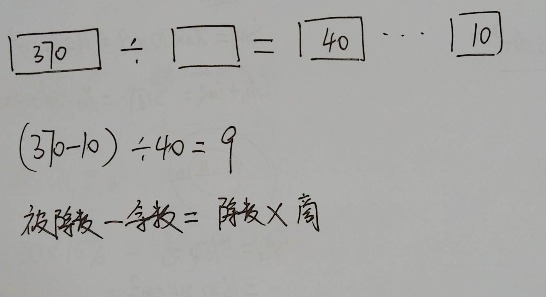 370 ÷ □ = 40 ··· 10
(370-10) ÷40 = 9
被除数-余数 = 除数×商